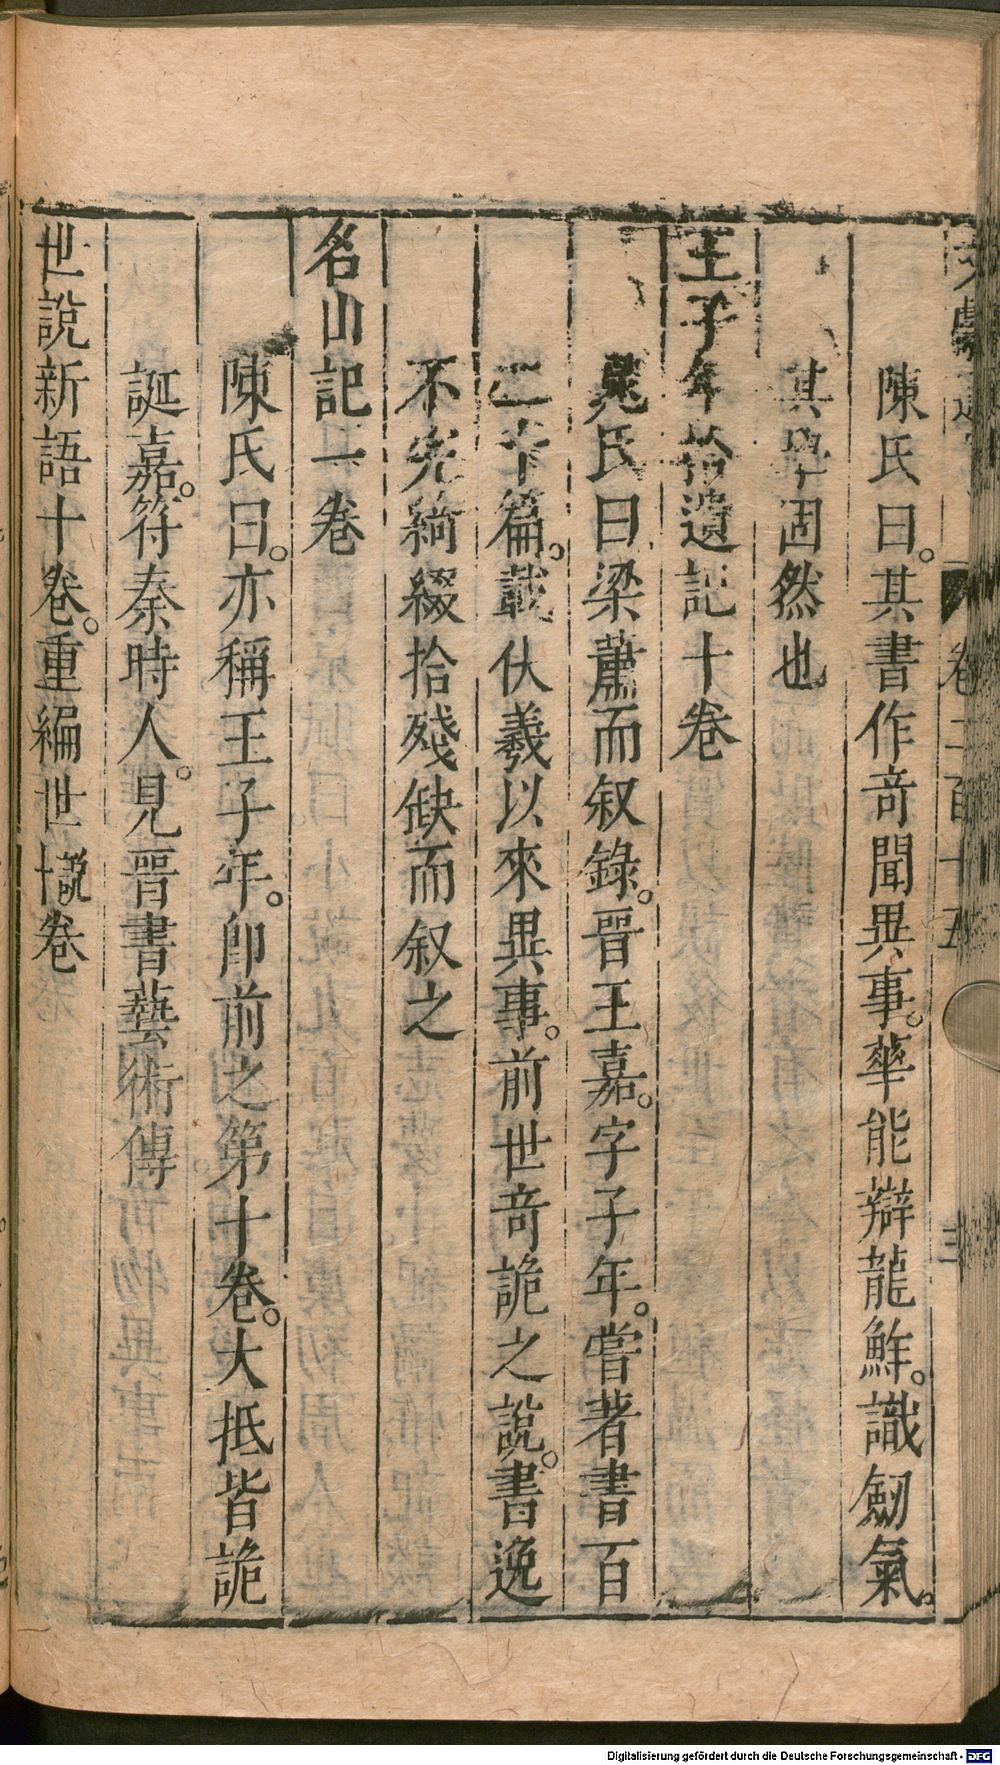 卷二百十五
三
陳氏曰。其書作奇聞異事。華能辯龍鮓。識劒氣。
其學固然也
王子年拾遺記十卷
晁氏曰梁蕭而叙錄。晉王嘉。字子年。嘗著書百
二十篇。載伏羲以來異事。前世奇詭之說。書逸
不完綺綴拾殘缺而叙之
名山記一卷
陳氏曰。亦稱王子年。卽前之第十卷。大抵皆詭
誕嘉。符秦時人。見晉書藝術傳
世說新語十卷。重編世說十卷
Digitalisierung gefördert durch die Deutsche Forschungsgemeinschaft - DFG